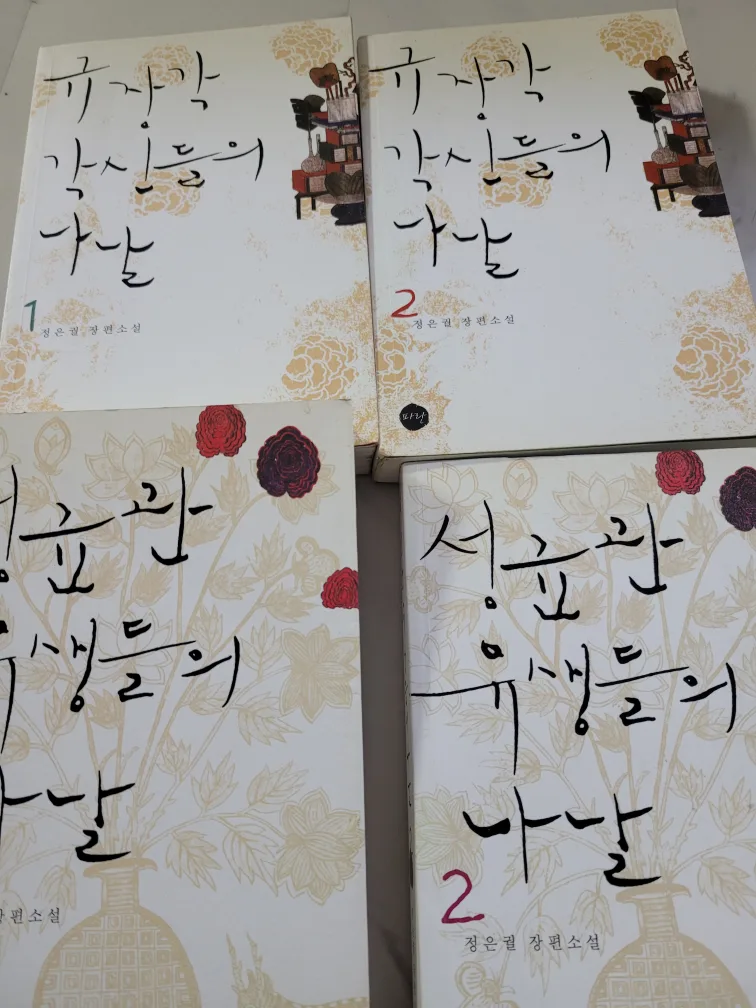 규장각
각신들의
나날
1
정은궐 장편소설
규장각
각신들의
나날
2
정은궐 장편소설
파란
성균관
유생들의
나날
장편소설
성균관
유생들의
나날
2
정은궐 장편소설